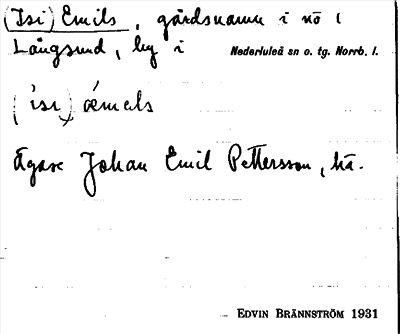 (Isi) Emils, gårdsnamn i nö 1
Långsund, by i Nederluleå sn o. tg. Norrb. l.
(ìsi) ǽməls
Ägare Johan Emil Pettersson, hä.
EDVIN BRÄNNSTRÖM 1931